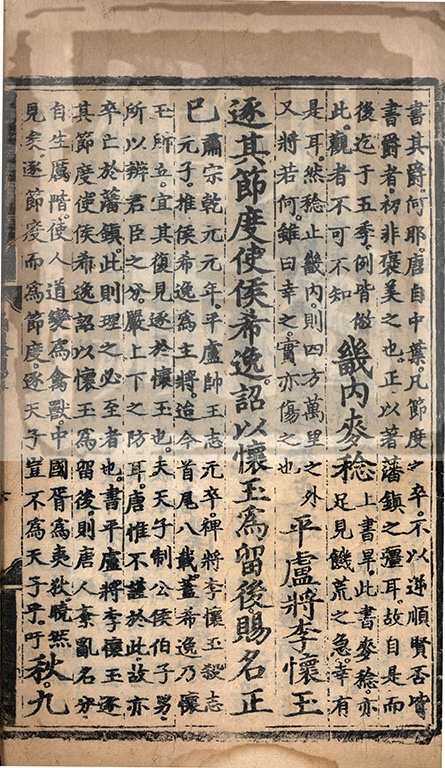 書其爵。何耶。唐自中葉。凡節度之卒。不以逆順賢否皆
書爵者。初非褒美之也。正以著藩鎮之彊耳。故自是而
後迄于五季。例皆倣
此。觀者不可不知
畿內麥稔
上書旱。此書麥稔。亦
足見饑荒之急。幸有
是耳。然稔止畿內。則四方萬里之外
又將若何。雖曰幸之。實亦傷之也
平盧將李懷玉
逐其節度使侯希逸。詔以懷玉爲留後賜名正
巳
肅宗乾元元年。平盧帥王志元卒。裨將李懷玉殺志
元子。推侯希逸爲主將。迨今首尾八載。蓋希逸乃懷
玉所立。宜其復見逐於懷玉也。夫天子制公侯伯子男。
所以辨君臣之分。嚴上下之防耳。唐惟不謹於此。故亦
卒亡於藩鎮。此則理之必至者也。書平盧將李懷玉逐
其節度使侯希逸詔以懷玉爲留後。則唐人紊亂名分。
自生厲階。使人道變爲禽獸。中國胥爲夷狄曉然
見矣。逐節度而爲節度。逐天子豈不爲天子乎。吁
秋九